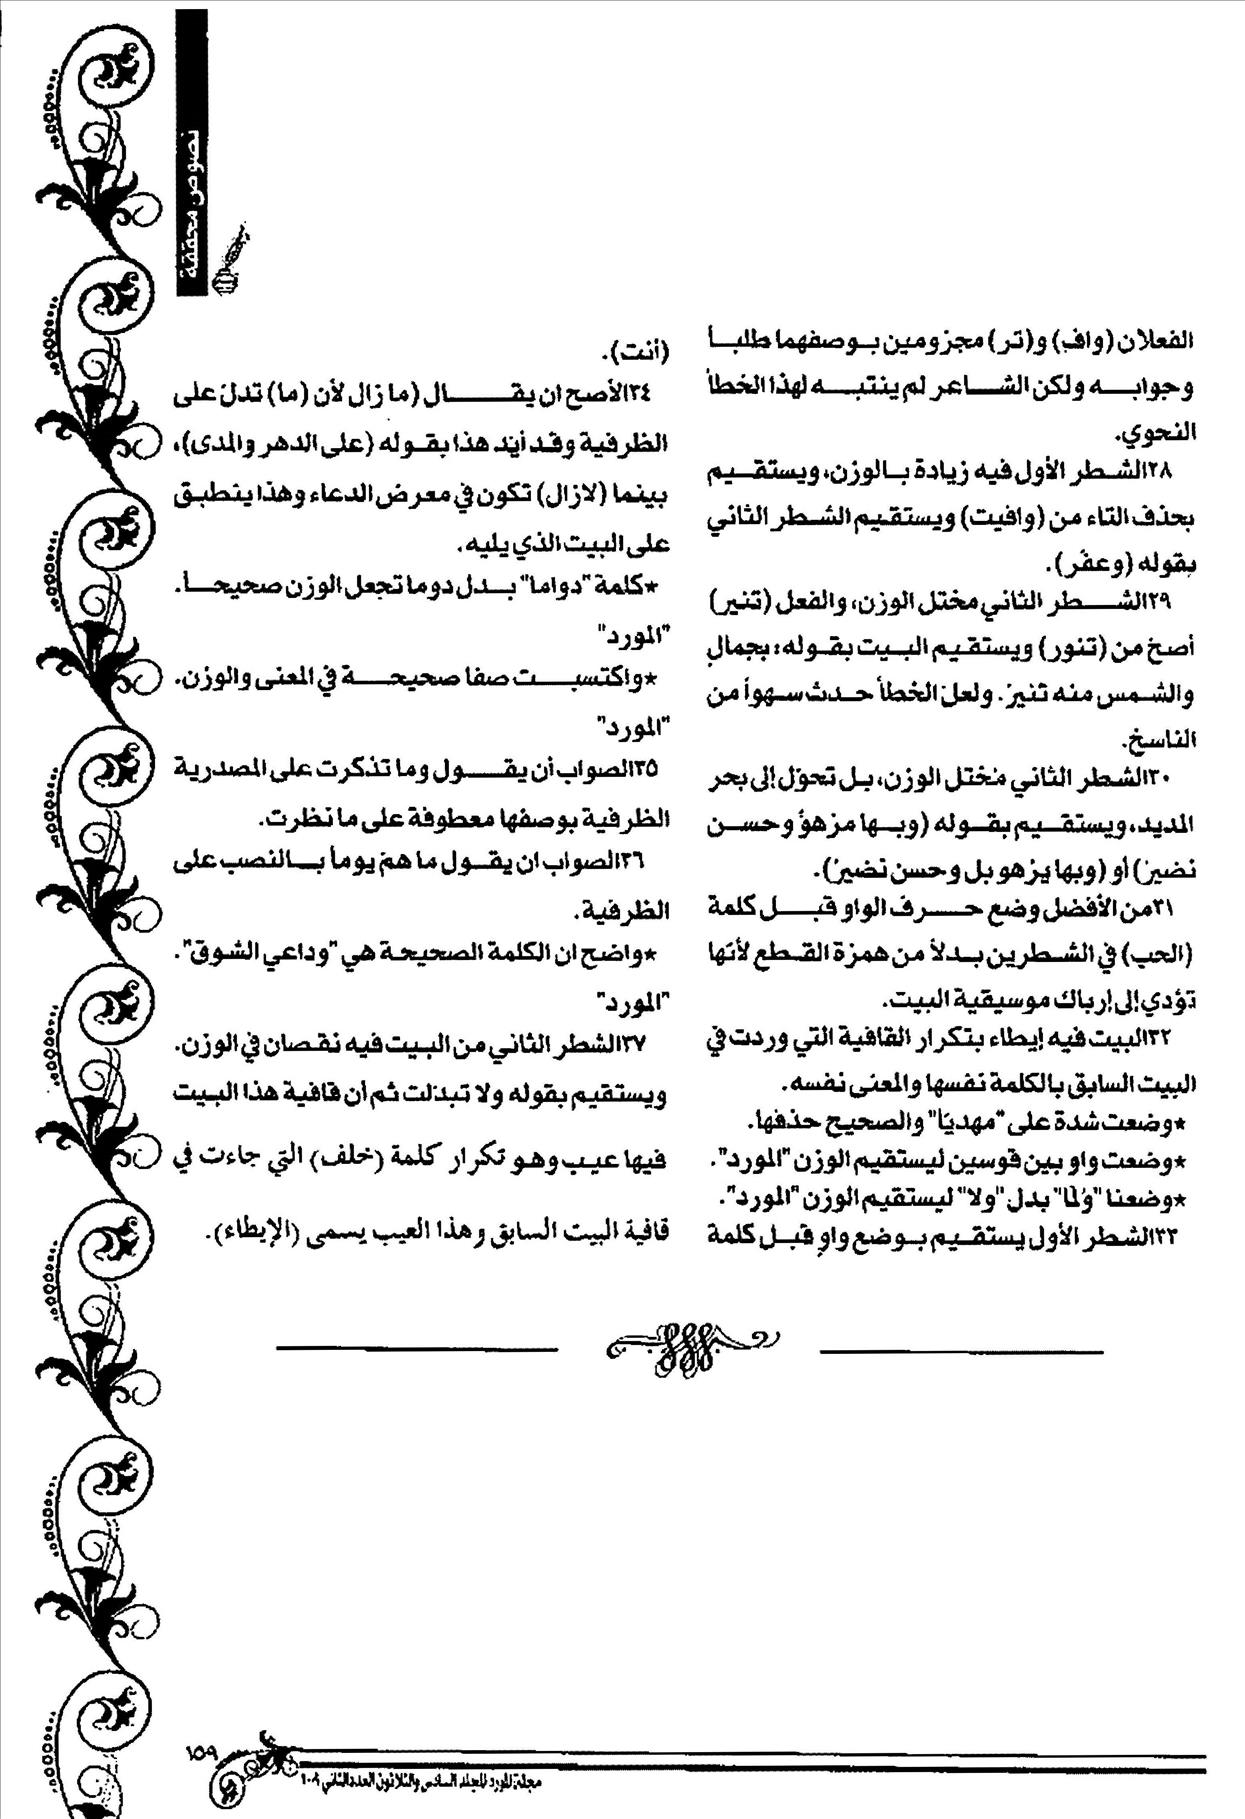 نصوص محققة
الفعلان (وافِ) و(تر) مجزومين بوصفهما طلباً
وجوابه ولكن الشاعر لم ينتبه لهذا الخطأ
النحوي.
٢٨الشطر الأول فيه زيادة بالوزن، ويستقيم
بحذف التاء من (وافيت) ويستقيم الشطر الثاني
بقوله (وعفّر).
٢٩الشطر الثاني مختل الوزن، والفعل (تنير)
أصخ من (تنور) ويستقيم البيت بقوله: بجمالِ
والشمس منه تنيرُ. ولعل الخطأ حدث سهواً من
الناسخ.
٣٠الشطر الثاني مختل الوزن، بل تحوّل إلى بحر
المديد، ويستقيم بقوله (وبها مزهوٌ وحسن
نضيرُ) أو (وبها يزهو بل وحسن نضيرُ).
٣١من الأفضل وضع حرف الواو قبل كلمة
(الحب) في الشطرين بدلاً من همزة القطع لأنها
تؤدي إلى إرباك موسيقية البيت.
٣٢البيت فيه إيطاء بتكرار القافية التي وردت في
البيت السابق بالكلمة نفسها والمعنى نفسه.
*وضعت شدة على "مهديّا" والصحيح حذفها.
*وضعت واو بين قوسين ليستقيم الوزن "المورد".
*وضعنا "ولمّا" بدل "ولا" ليستقيم الوزن "المورد".
٣٣الشطر الأول يستقيم بوضع واوٍ قبل كلمة
(أنت).
٣٤الأصح ان يقال (ما زال لأن (ما) تدلّ على
الظرفية وقد أيّد هذا بقوله (على الدهر والمدى)،
بينما (لازال) تكون في معرض الدعاء وهذا ينطبق
على البيت الذي يليه.
*كلمة "دواما" بدل دوما تجعل الوزن صحيحاً.
"المورد"
*واكتسبت صفا صحيحة في المعنى والوزن.
"المورد"
٣٥الصواب أن يقول وما تذكرت على المصدرية
الظرفية بوصفها معطوفة على ما نظرت.
٣٦الصواب ان يقول ما همّ يوماً بالنصب على
الظرفية.
*واضح ان الكلمة الصحيحة هي "وداعي الشوق".
"المورد"
٣٧الشطر الثاني من البيت فيه نقصان في الوزن.
ويستقيم بقوله ولا تبدّلت ثم أن قافية هذا البيت
فيها عيب وهو تكرار كلمة (خلف) التي جاءت في
قافية البيت السابق وهذا العيب يسمى (الإيطاء).
١٥٩
مجلة المورد المجلد السادس والثلاثون العدد الثاني